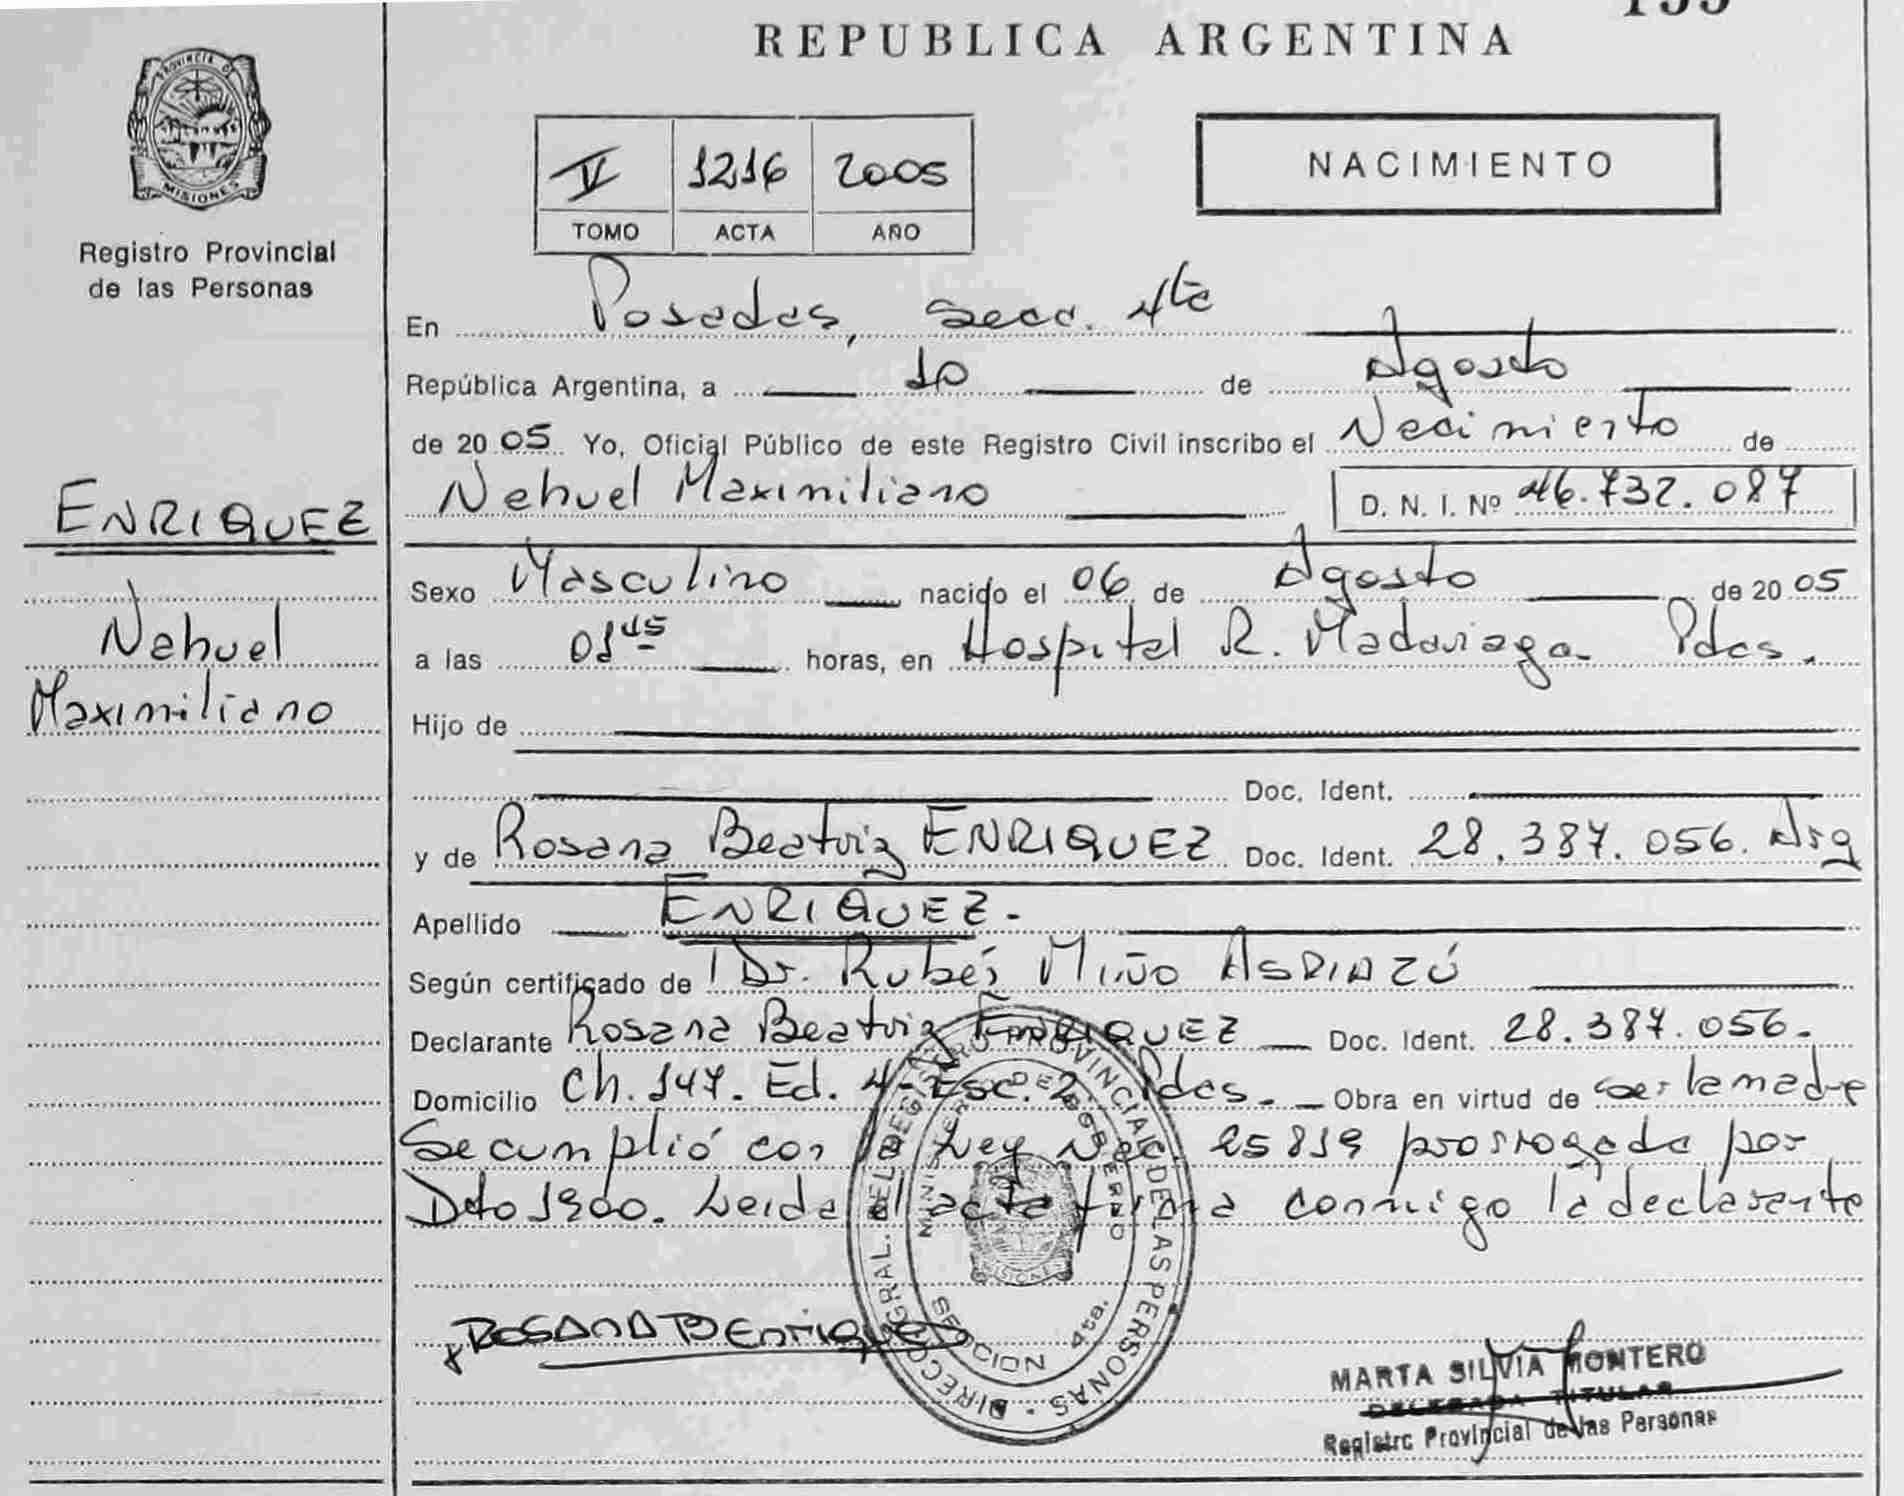 REPUBLICA ARGENTINA
PROVINCIA DE
MISIONES
Registro Provincial
de las Personas
V 1216 2005
TOMO ACTA AÑO
NACIMIENTO
En Posadas, Secc. 4ta
República Argentina, a 10 de Agosto
de 20 05 Yo, Oficial Público de este Registro Civil inscribo el Nacimiento de
Nahuel Maximiliano D. N. I. Nº 46.732.087
ENRIQUEZ
Nahuel
Maximiliano
Sexo Masculino nacido el 06 de Agosto de 20 05
a las 01 45 horas, en Hospital R. Madariaga - Pdas.
Hijo de
Doc. Ident.
y de Rosana Beatriz ENRIQUEZ Doc. Ident. 28.387.056. Arg
Apellido ENRIQUEZ.-
Según certificado de Dr. Rubén Miño
Declarante Rosana Beatriz ENRIQUEZ Doc. Ident. 28.387.056.
Domicilio Ch. 147. Ed. 4- Esc. 2. Pdas. Obra en virtud de ser la madre
Se cumplió con la Ley Nac. 25819 prorrogada por
Dto 1900. Leida el acta firma conmigo la declarante
DIRECC. GRAL. DEL REGISTRO PROVINCIAL DE LAS PERSONAS
MINISTERIO DE GOBIERNO
MISIONES
SECCION 4ta.
ROSANA B Enriquez
MARTA SILVIA MONTERO
DELEGADA TITULAR
Registro Provincial de las Personas